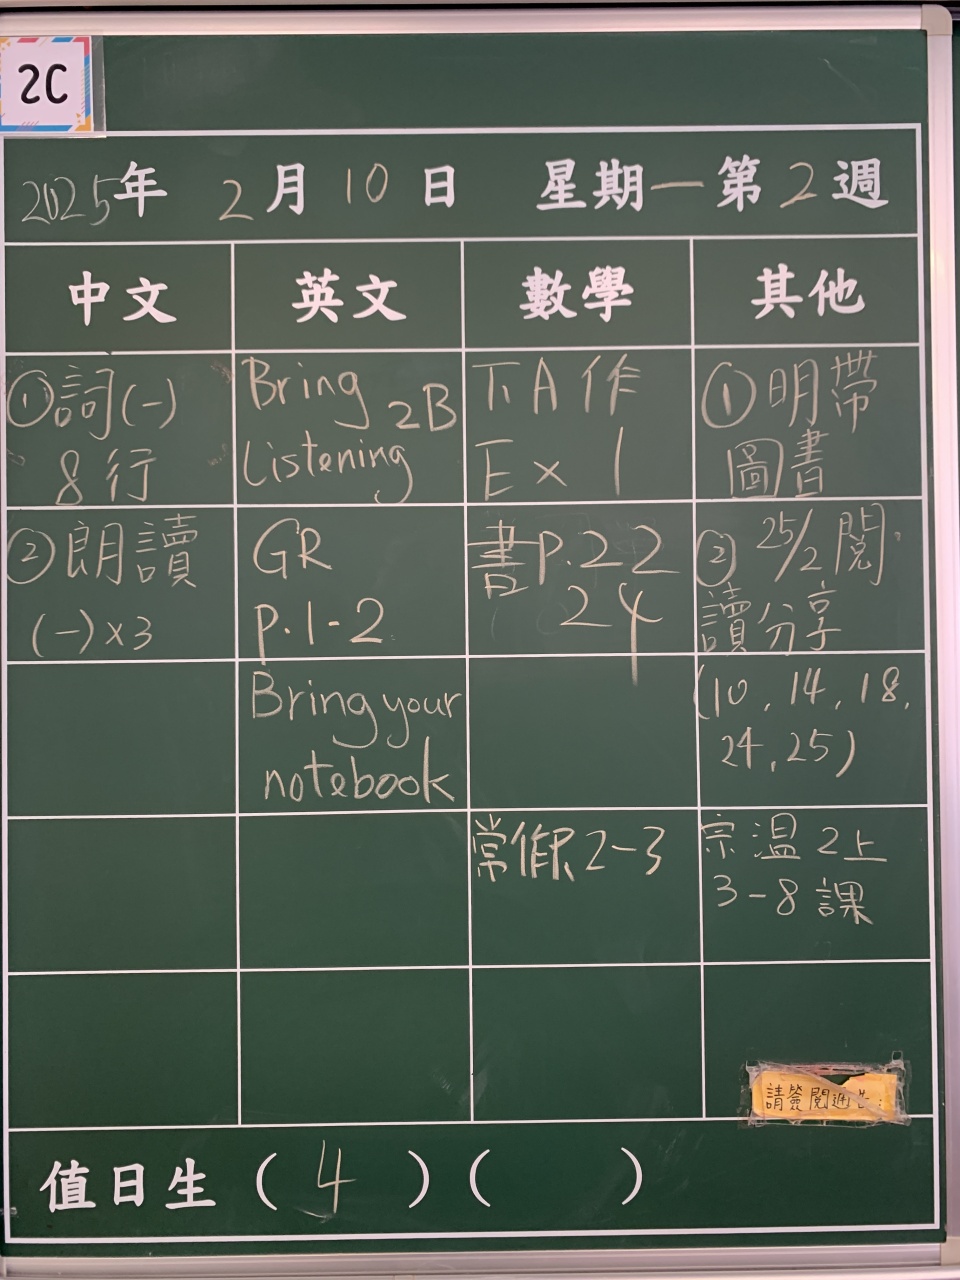 2C
2025年 2月10日 星期一 第2週
中文 英文 數學 其他
①詞(一)
8行
Bring 2B
Listening
下A作
Ex 1
①明帶
圖書
②朗讀
(一)×3
GR
P.1-2
書P.22
24
②25/2閱
讀分享
Bring your
notebook
(10, 14, 18,
24, 25)
常作 2-3
宗溫2上
3-8課
請簽閱通告:
值日生(4)( )